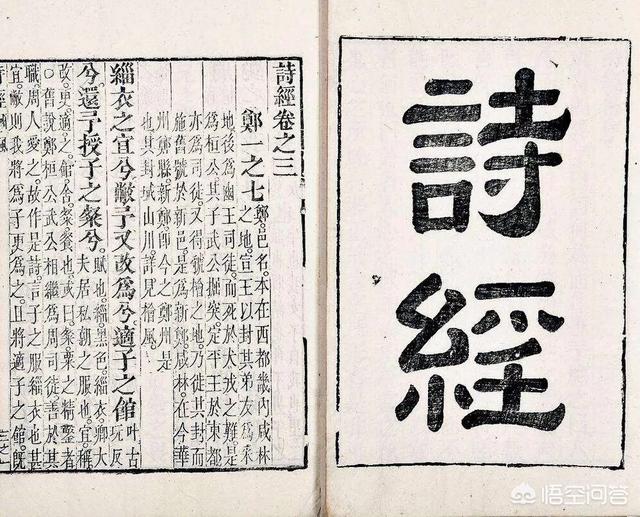 詩經
詩經卷之三
鄭一之七
鄭。邑名。本在西都畿內咸林
之地。宣王以封其弟友爲采
地後爲幽王司徒。而死於犬戎之難。是
爲桓公其子武公掘突。定平王於東都
亦爲司徒。又得虢檜之地。乃徙其封而
施舊號於新邑。是爲新鄭。咸林。在今華
州鄭縣新鄭。即今之鄭州是
也其封域山川。詳見檜風
緇衣之宜兮。敝予又改爲兮。適子之館
叶古
玩反
兮。還予授子之粲兮。
賦也。緇。黑色。緇衣。卿大
夫居私朝之服也。宜。稱
改。更。適。之。館。舍。粲。餐也。或曰。粲。粟之精鑿者
○舊說鄭桓公武公相繼爲周司徒善於其
職。周人愛之。故作是詩。言子之服緇衣也甚
宜。敝則我將爲子更爲之。且將適子之館。旣
悟空问答